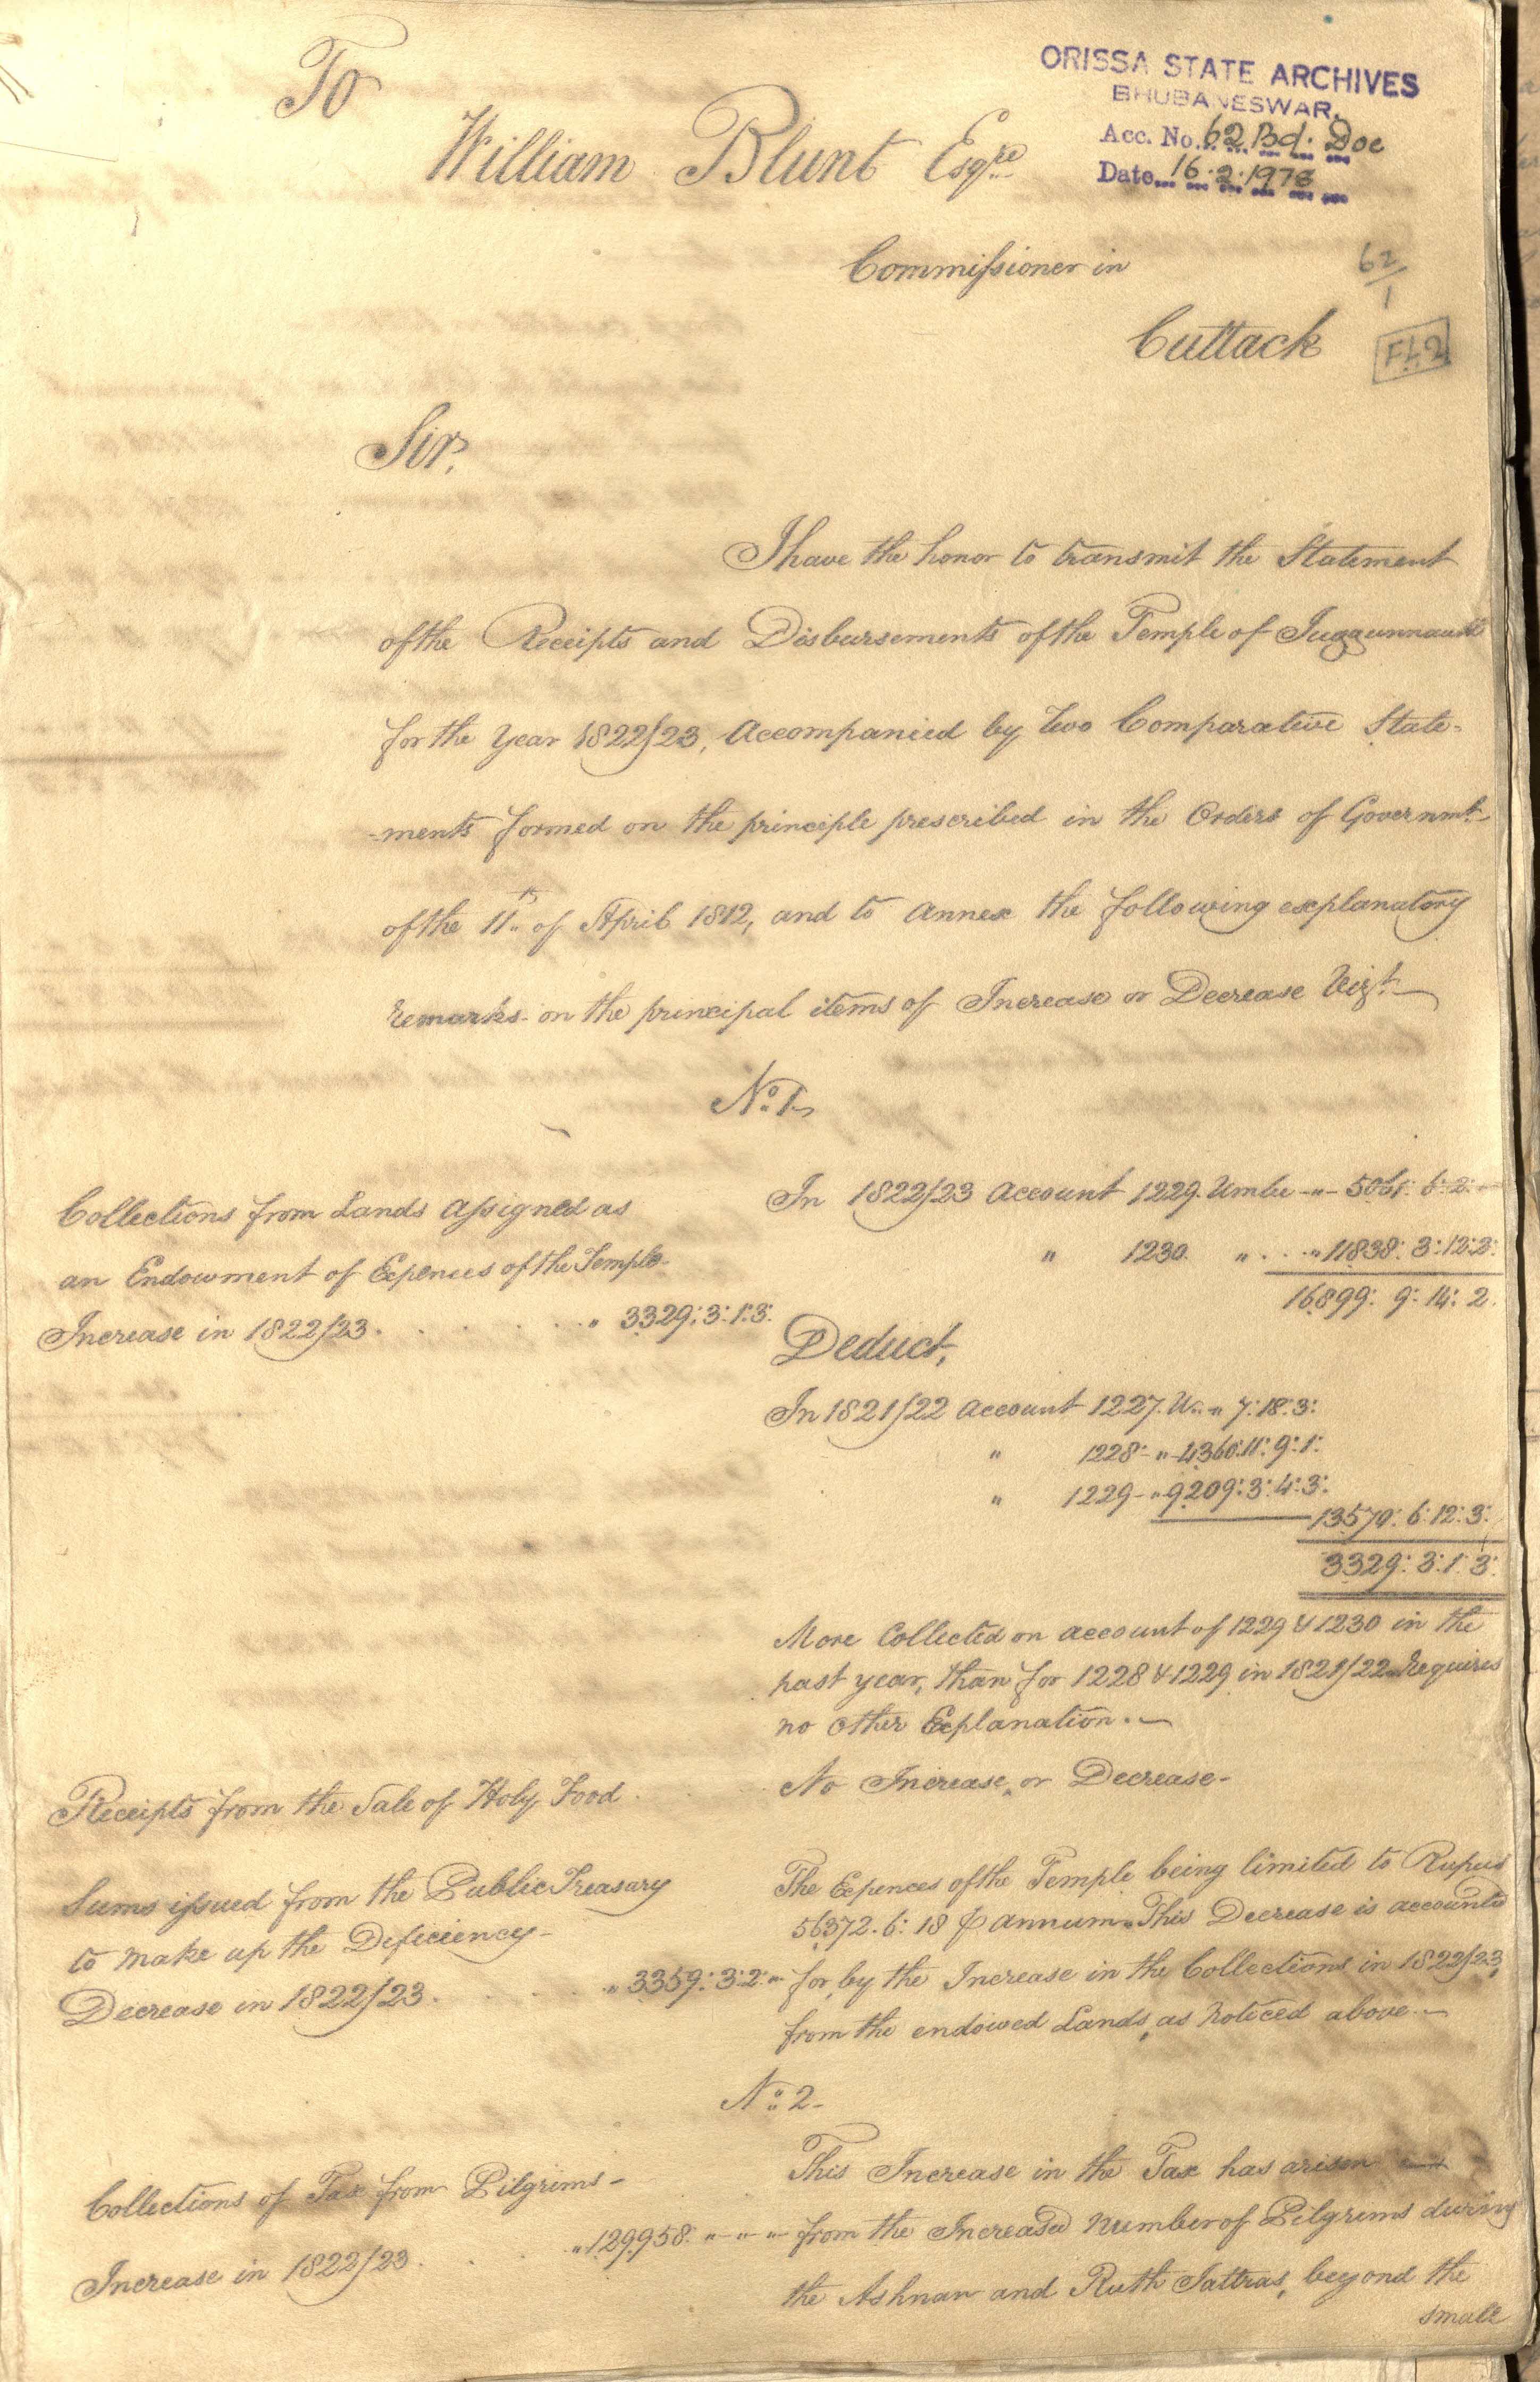 To
ORISSA STATE ARCHIVES
BHUBANESWAR.
Acc. No. 62 Bd. Doc
Date 16.2.1978
William Blunt Esqre
Commissioner in
62/1
Cuttack
Sir,
I have the honor to transmit the Statement
of the Receipts and Disbursements of the Temple of Juggunnauth
for the Year 1822/23, Accompanied by two Comparative State-
-ments formed on the principle prescribed in the Orders of Governmt.
of the 11th of April 1812, and to annex the following explanatory
remarks on the principal items of Increase or Decrease Vizt.
No. 1
Collections from Lands Assigned as
an Endowment of Expences of the Temple
Increase in 1822/23 . . . . . " 3329:3:1:3:
In 1822/23 Account 1229 Umlee - " - 5061: 6: 2: "
" 1230. " . . " 11838: 3:12:3:
16899: 9: 14: 2.
Deduct,
In 1821/22 Account 1227. U.. " 7:18:3:
" 1228:- " -4360:11:9:1:
" 1229 - " 9209:3:4:3:
13570: 6:12:3:
3329: 3:1:3:
More Collected on account of 1229 & 1230 in the
past year, than for 1228 & 1229 in 1821/22 Requires
no other Explanation. -
Receipts from the Sale of Holy Food .
No Increase, or Decrease -
Sums issued from the Public Treasury
to make up the Deficiency -
Decrease in 1822/23 . . . . . " 3359:3:2: "
The Expences of the Temple being limited to Rupees
56372. 6: 18 ⅌ annum. This Decrease is accounted
for, by the Increase in the Collections in 1822/23,
from the endowed Lands, as noticed above. -
No. 2 -
Collections of Tax from Pilgrims -
Increase in 1822/23 . . . . " 129958. " - " - "
This Increase in the Tax has arisen
from the Increased number of Pilgrims during
the Ashnan and Ruth Jattras, beyond the
small